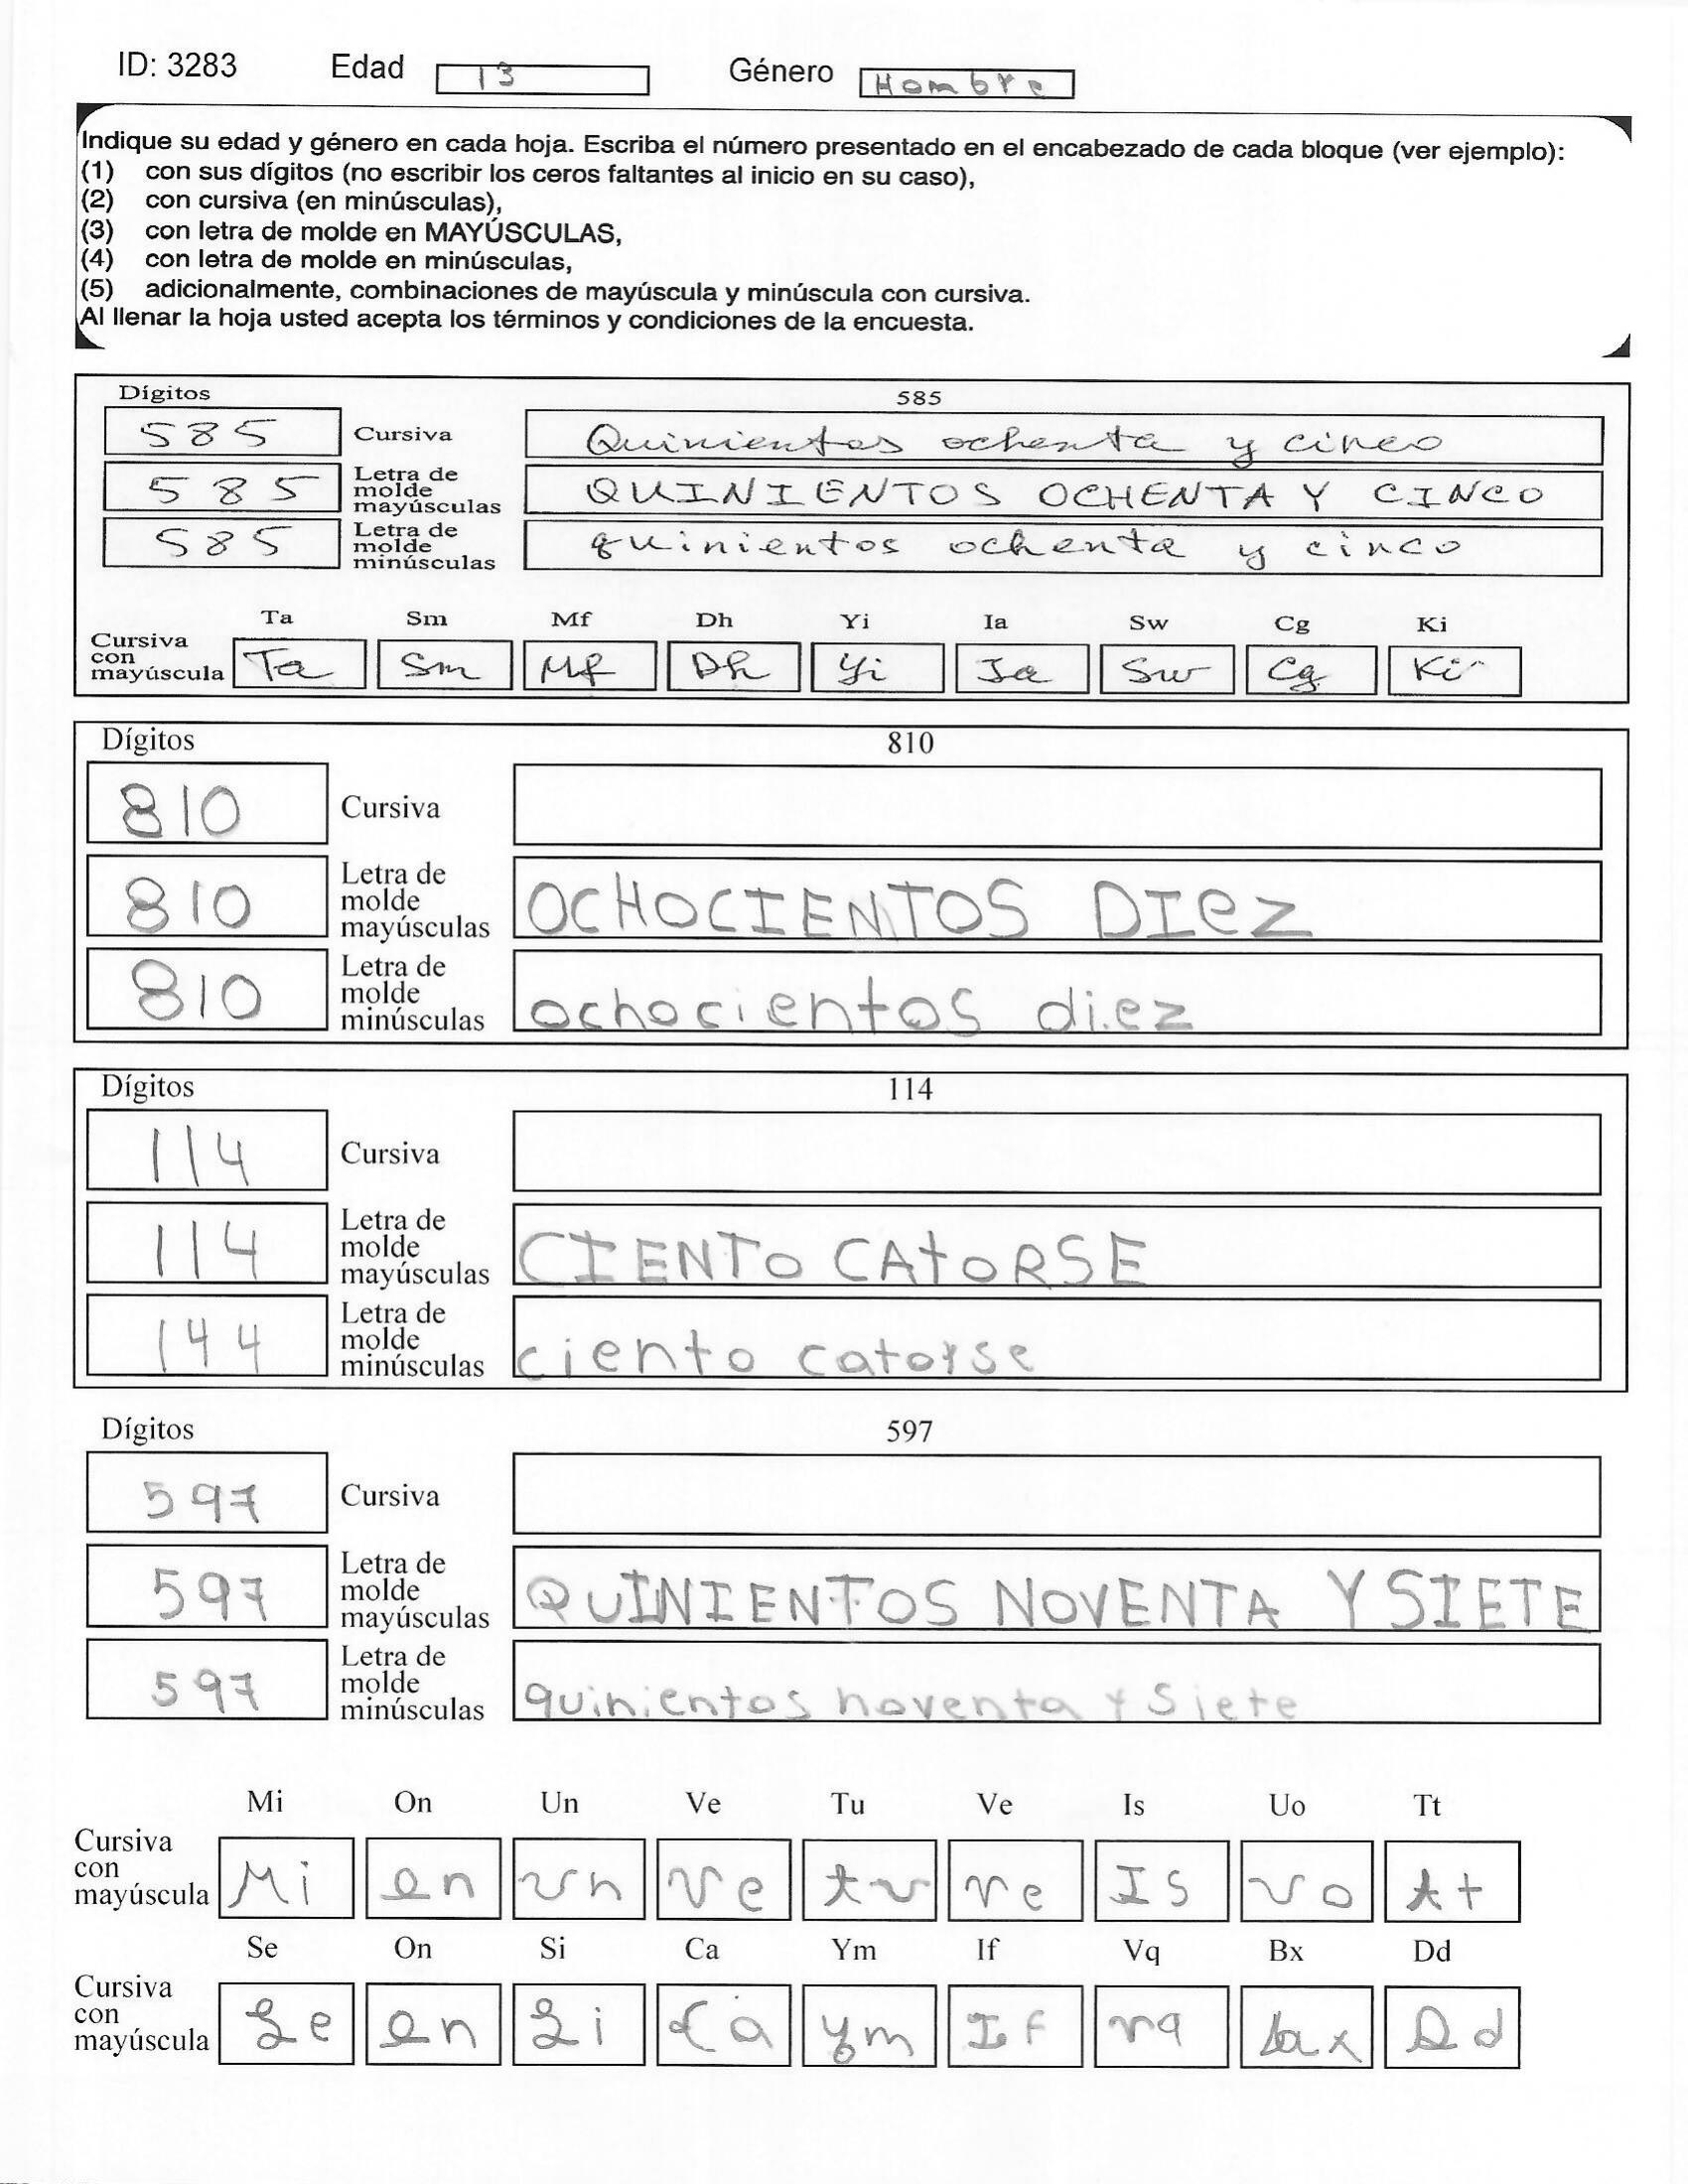 ID: 3283 Edad 13 Género Hombre
Indique su edad y género en cada hoja. Escriba el número presentado en el encabezado de cada bloque (ver ejemplo):
(1) con sus dígitos (no escribir los ceros faltantes al inicio en su caso),
(2) con cursiva (en minúsculas),
(3) con letra de molde en MAYÚSCULAS,
(4) con letra de molde en minúsculas,
(5) adicionalmente, combinaciones de mayúscula y minúscula con cursiva.
Al llenar la hoja usted acepta los términos y condiciones de la encuesta.
Dígitos 585
585 Cursiva Quinientos ochenta y cinco
585 Letra de molde mayúsculas QUINIENTOS OCHENTA Y CINCO
585 Letra de molde minúsculas quinientos ochenta y cinco
Ta Sm Mf Dh Yi Ia Sw Cg Ki
Cursiva con mayúscula Ta Sm Mf Dh Yi Ia Sw Cg Ki
Dígitos 810
810 Cursiva
810 Letra de molde mayúsculas OCHOCIENTOS DIeZ
810 Letra de molde minúsculas ochocientos diez
Dígitos 114
114 Cursiva
114 Letra de molde mayúsculas CIENTO CAtoRSE
144 Letra de molde minúsculas ciento catorse
Dígitos 597
597 Cursiva
597 Letra de molde mayúsculas QUINIENTOS NOVENTA Y SIETE
597 Letra de molde minúsculas quinientos noventa y Siete
Mi On Un Ve Tu Ve Is Uo Tt
Cursiva con mayúscula Mi On Un Ve Tu Ve Is Uo Tt
Se On Si Ca Ym If Vq Bx Dd
Cursiva con mayúscula Se On Si Ca Ym If Vq Bx Dd